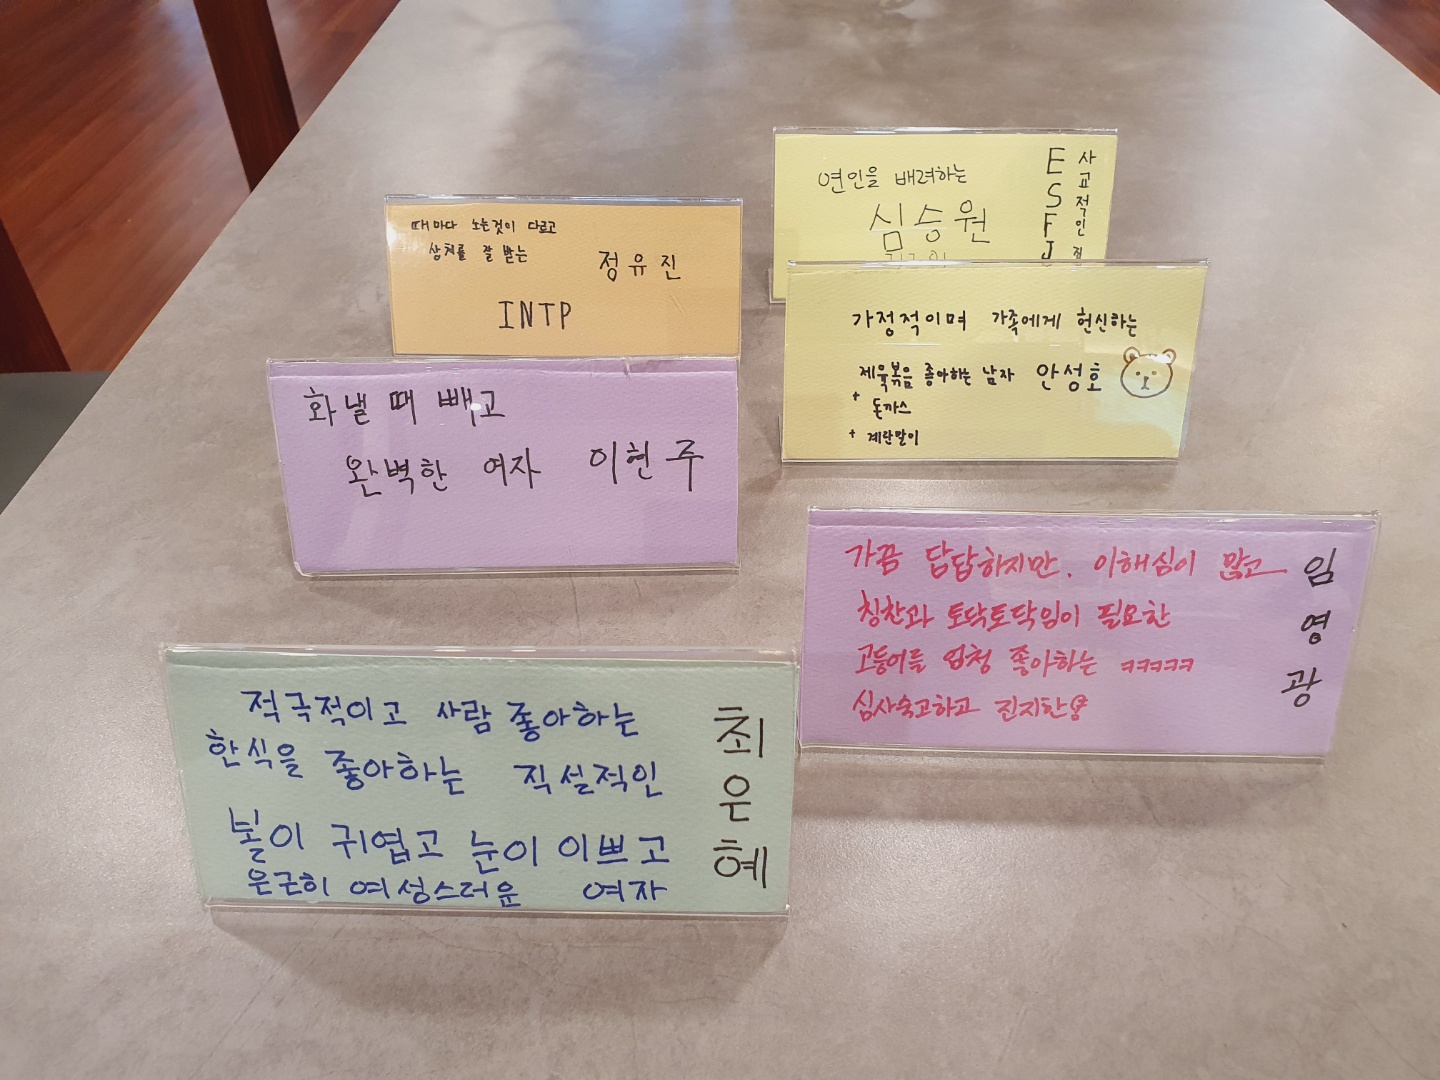 연인을 배려하는
심승원
ESFJ
사교적인
때마다 노는것이 다르고
상처를 잘 받는
정유진
INTP
가정적이며 가족에게 헌신하는
제육볶음 좋아하는 남자 안성호
+ 돈까스
+ 계란말이
화낼 때 빼고
완벽한 여자 이현주
가끔 답답하지만, 이해심이 많고
칭찬과 토닥토닥임이 필요한
고등어를 엄청 좋아하는 ㅋㅋㅋㅋㅋ
심사숙고하고 진지한
임영광
적극적이고 사람 좋아하는
한식을 좋아하는 직설적인
볼이 귀엽고 눈이 이쁘고
은근히 여성스러운 여자
최은혜